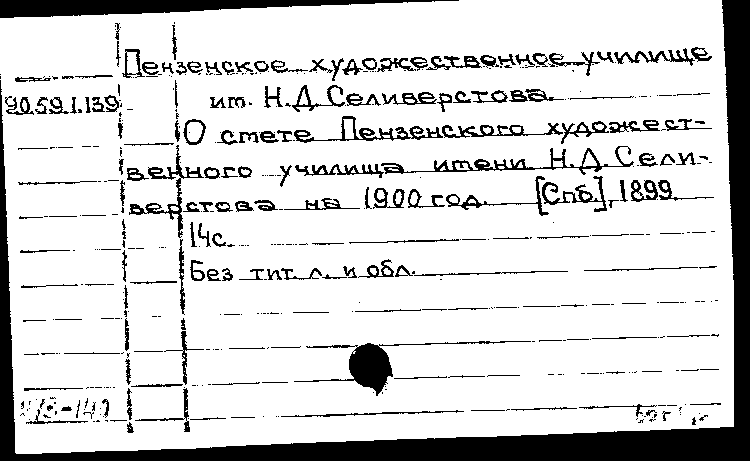 Пензенское художественное училище
90.59.1.139 им. Н.Д. Селиверстова.
О смете Пензенского художест-
венного училища имени Н.Д. Сели-
верстова на 1900 год. [Спб.], 1899.
14с.
Без тит. л. и обл.